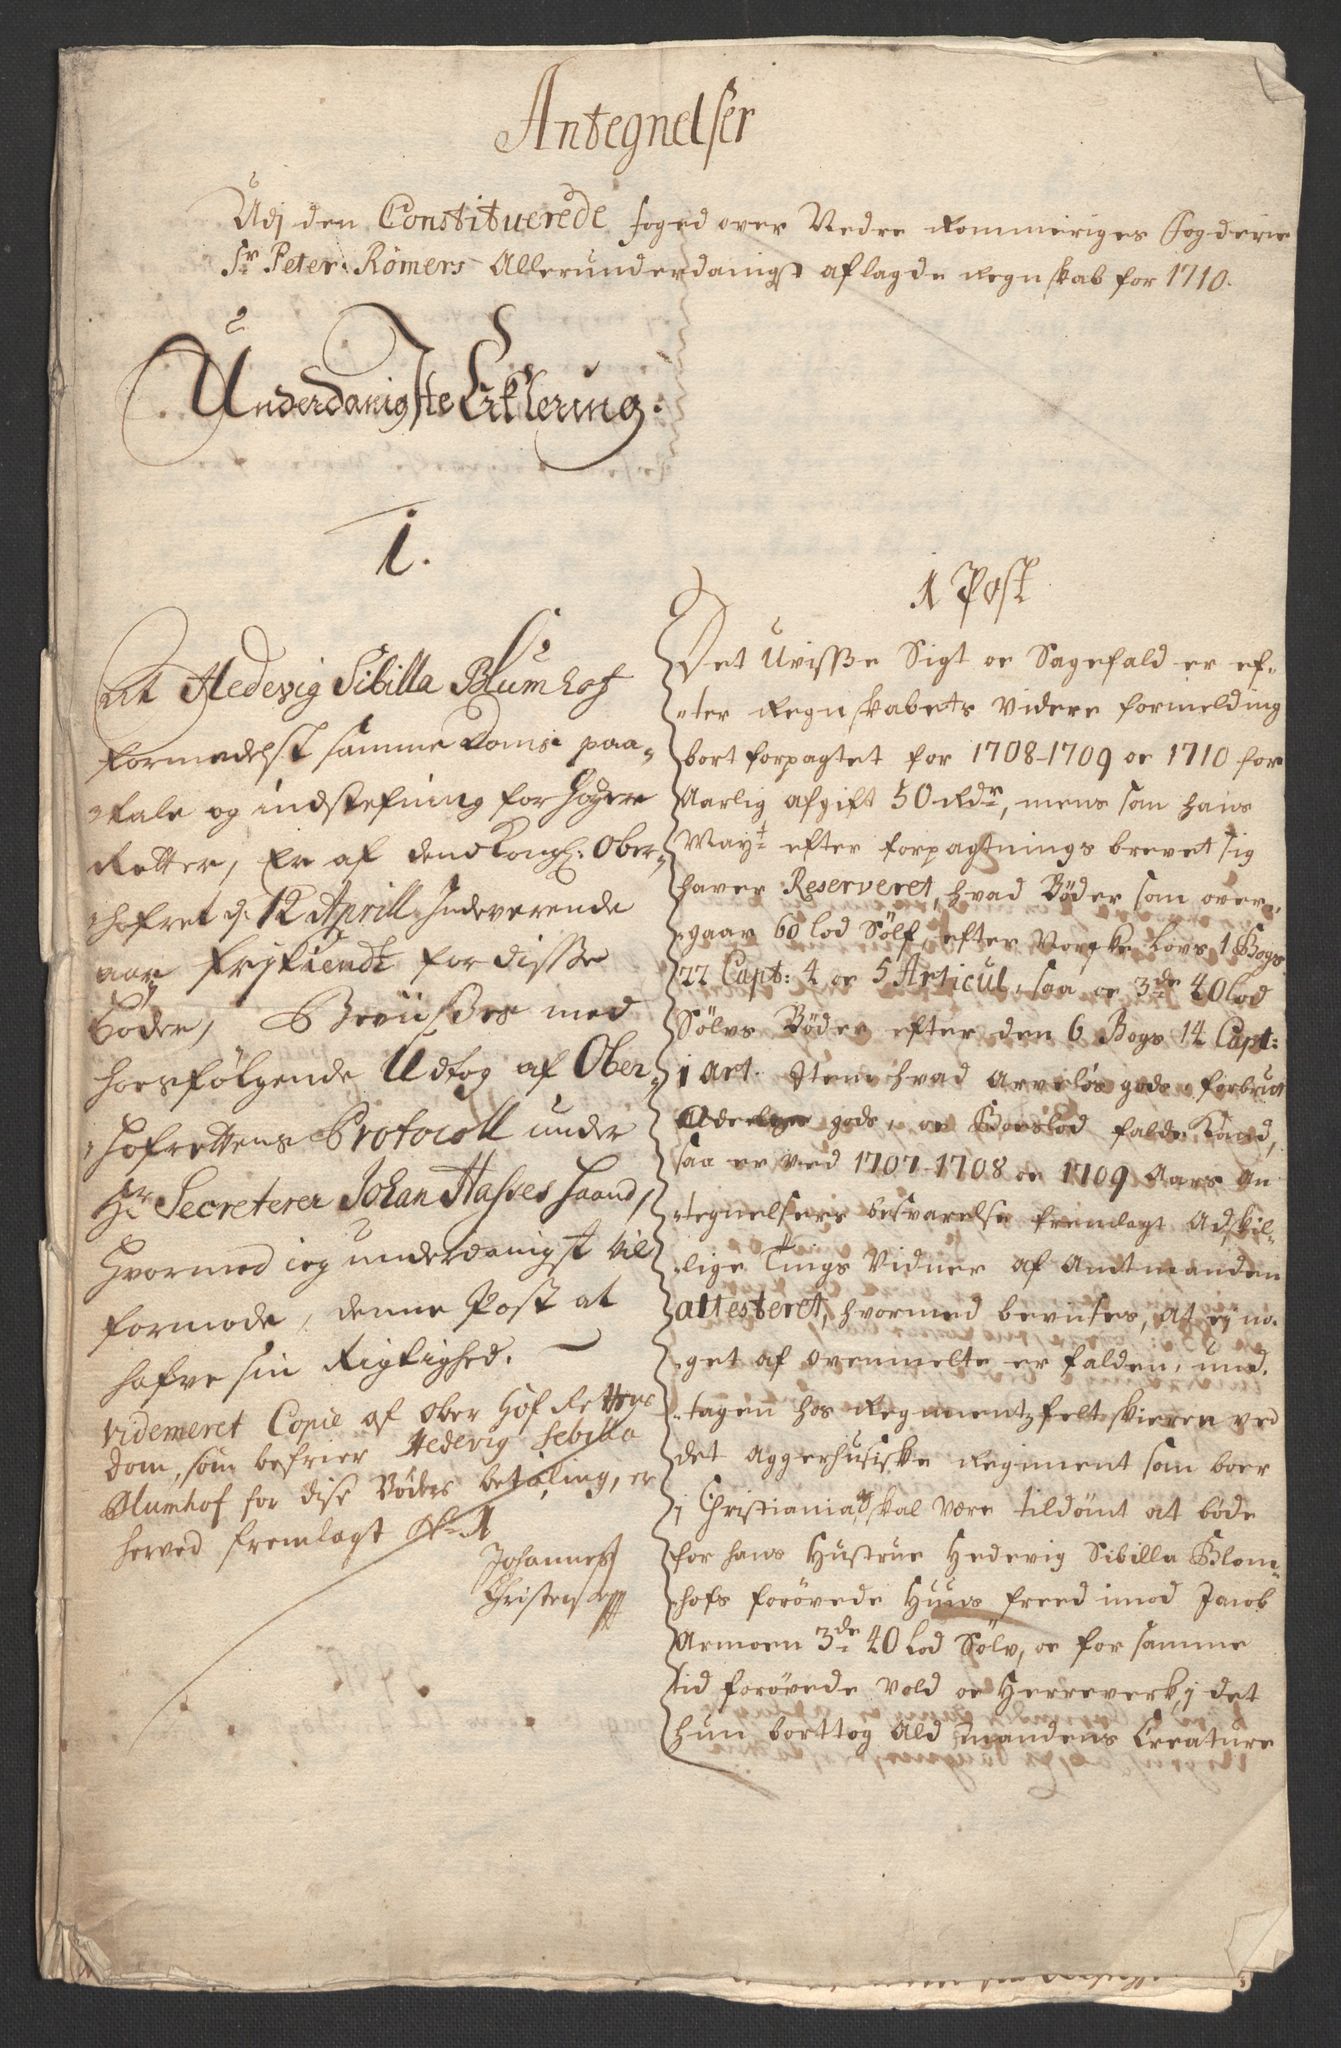 Antegnelser
Udj den Constituerede foged over Nedre Rommeriges fogderie
Sr Peter Römers Allerunderdanigst aflagde Regnskab for 1710.
Underdanigste Erklering.
1.
At Hedevig Sibilla Blumhof
formedelst samme Doms paa-
tale og indstefning for høyere
Retter, Er af den Kongl: Ober-
hofret d: 12 Aprill Indeverende
aar frykiendt for disse
Bøder, Beviisses med
hosfølgende Udtog af Ober-
Hofrettens Protocoll under
Hr Secreterer Johan Hasses haand,
Hvormed ieg underdanigst vil
formode, denne Post at
hafve sin Rigtighed.
Videmeret Copie af Ober Hof Rettens
Dom, som befrier Hedevig Sebilla
Blumhof for dise Bøders betaling, er
herved fremlagt No 1
Johannes
Christensen
1 Post
Det Uvisse Sigt oc Sagefald er ef-
ter Regnskabets Videre formelding
bort forpagtet for 1708-1709 oc 1710 for
Aarlig afgift 50 Rdr, mens som hans
Mayt efter forpagtnings brevet sig
haver Reserveret, hvad Bøder som over-
gaar 60 lod Sølf, efter Norske Lovs 1 Bogs
22 Capt: 4 oc 5 Articul, saa oc 3de 40 Lod
Sølvs Bøder efter den 6 Bogs 14 Capt:
1 Art. Item hvad arveløs gods forbrut
gods, oc Boeslod falde Kand,
saa er ved 1707-1708 oc 1709 Aars An
tegnelsers besvarelse fremlagt Adskil-
lige Tings Vidner af Amtmanden
attesteret, hvormed beviises, at ej no-
get af ovenmelte er falden, und-
tagen hos Regimentz feltskieren ved
det Aggerhusiske Regiment som boer
j Christiania skal være tildømt at bøde
for hans Hustrue Hedevig Sibilla Blom-
hofs forøvede Huus freed imod Jacob
Armoen 3de 40 Lod Sølv, oc for samme
tid forøvede Vold oc Herreverk, j det
hun borttog Ald mandens Creature